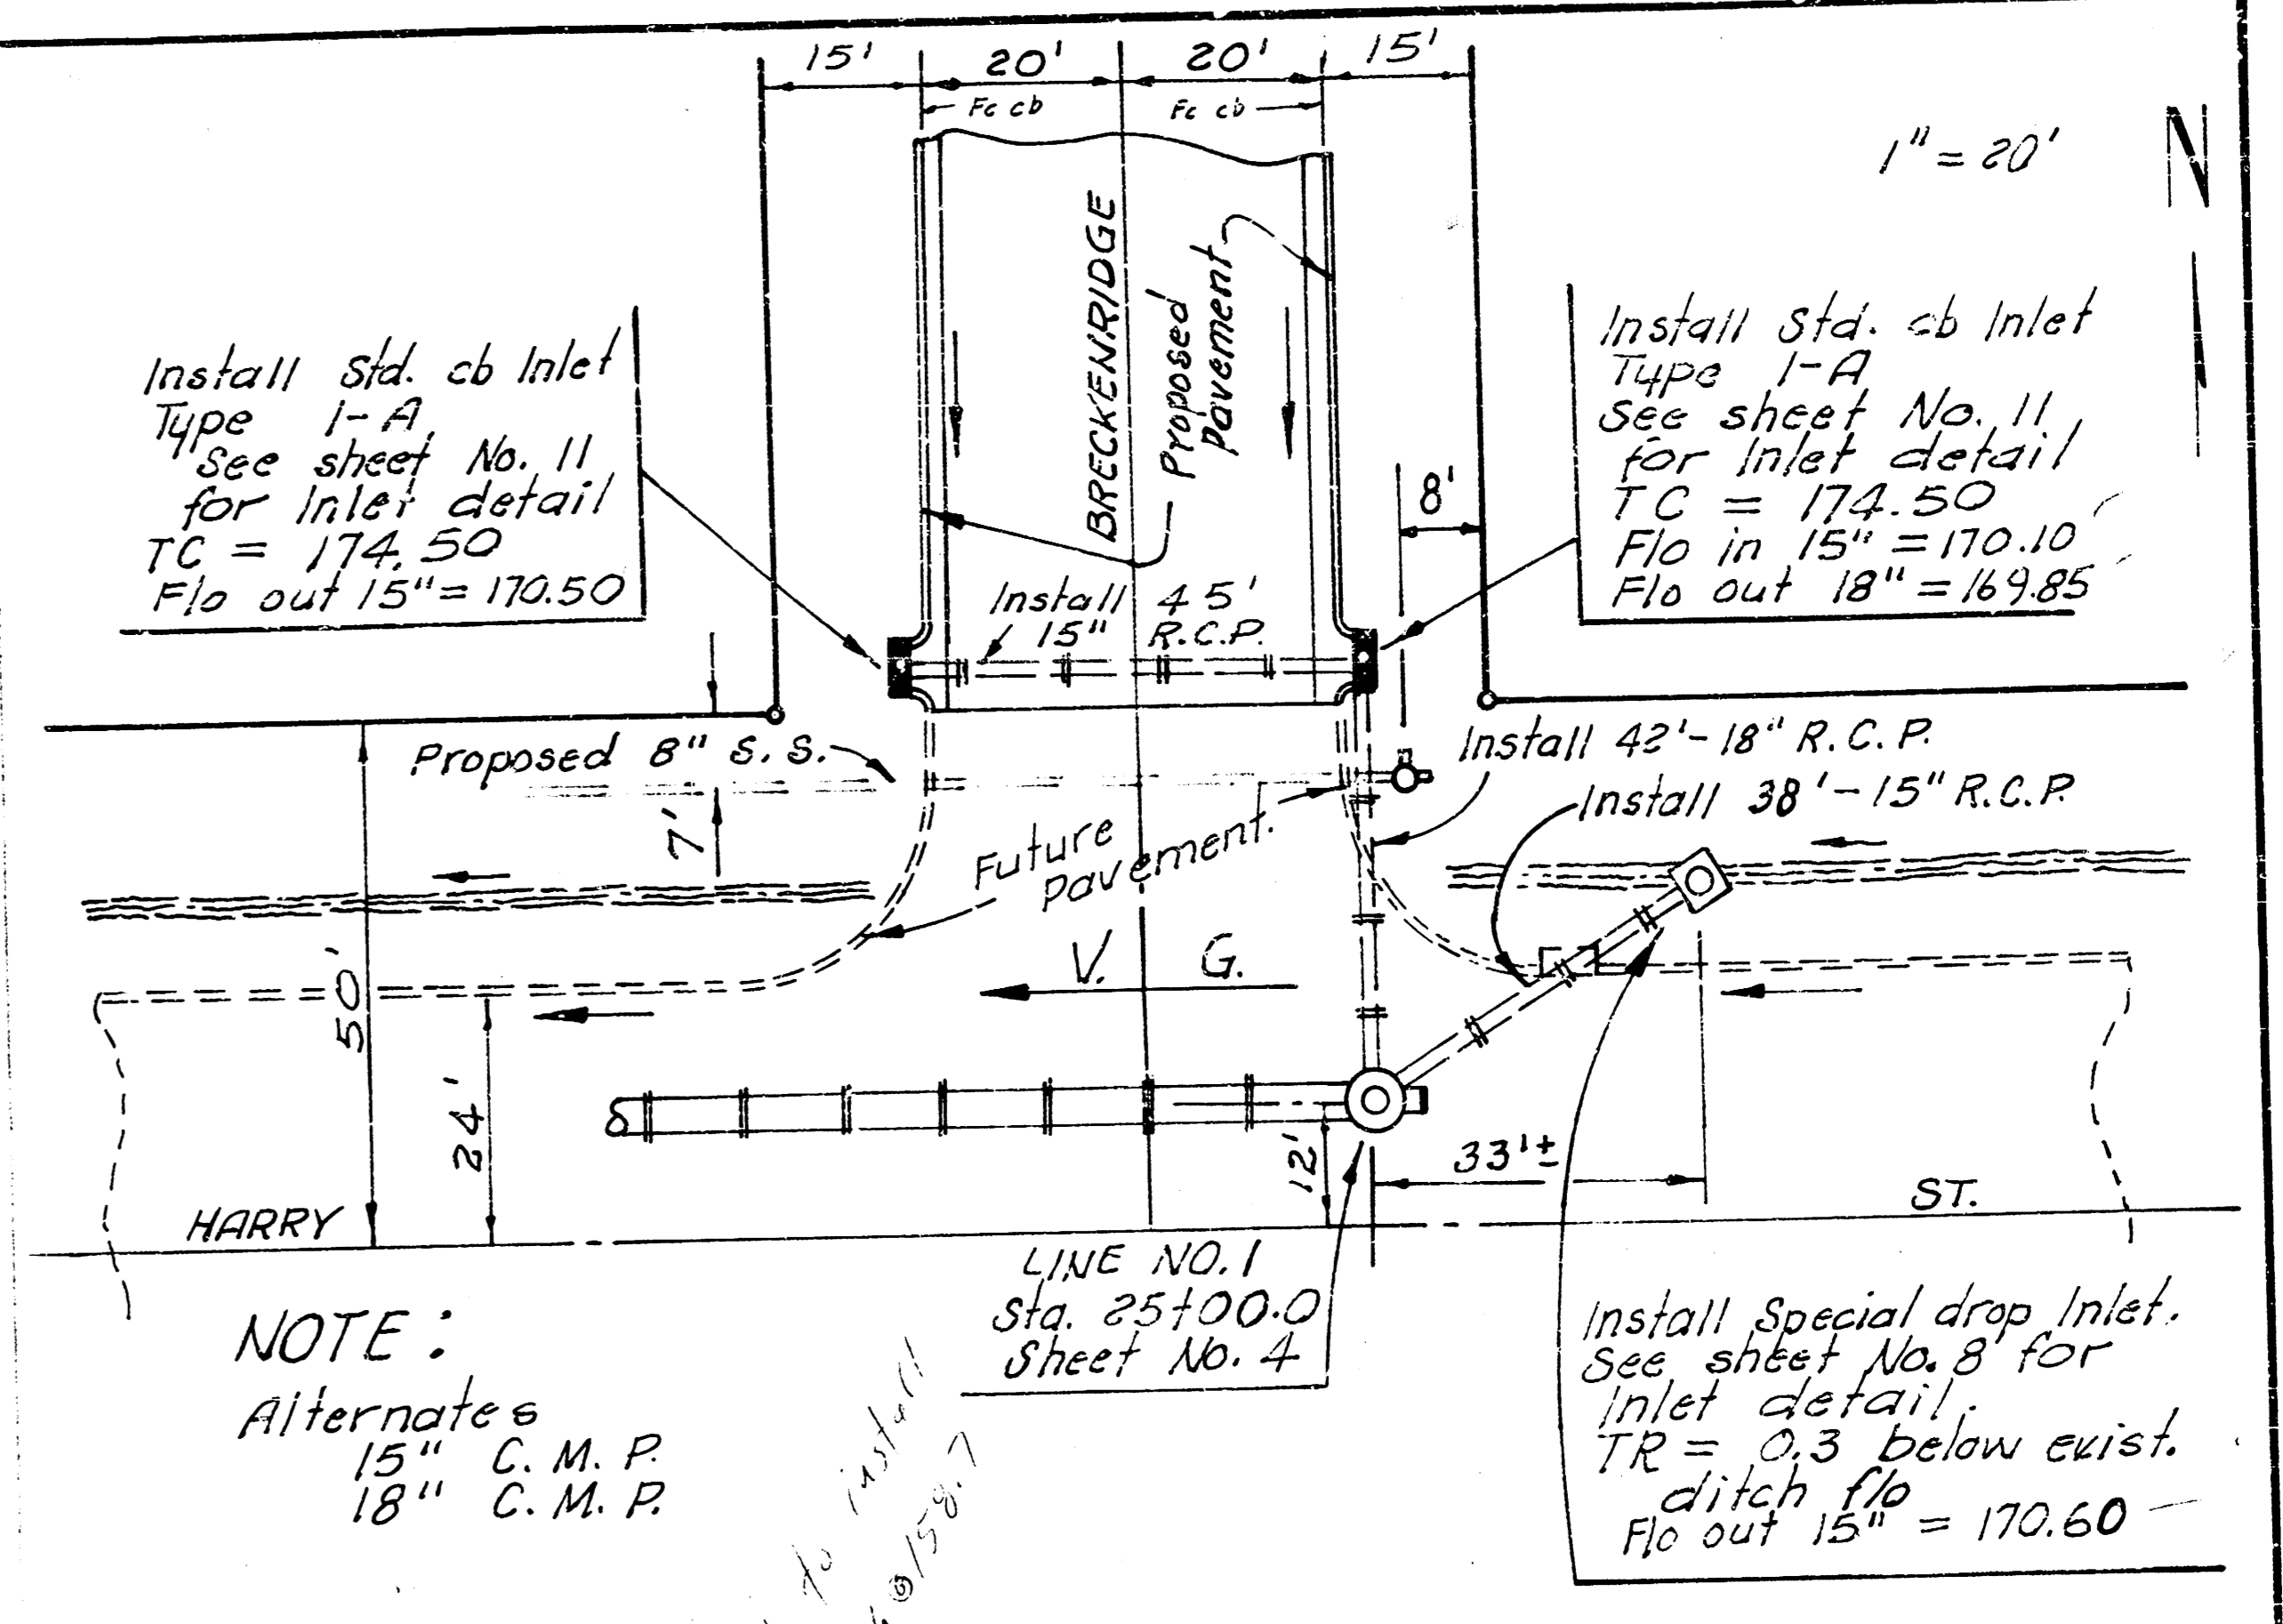 15' 20' 20' 15'
Fc cb Fc cb
1" = 20'
N
BRECKENRIDGE
Proposed
Pavement
Install Std. cb Inlet
Type 1-A
See sheet No. 11
for Inlet detail
TC = 174.50
Flo out 15" = 170.50
Install Std. cb Inlet
Type 1-A
See sheet No. 11
for Inlet detail
TC = 174.50
Flo in 15" = 170.10
Flo out 18" = 169.85
8'
Install 45'
15" R.C.P.
Proposed 8" S. S.
Install 42'-18" R.C.P.
Install 38'-15" R.C.P.
7'
Future
pavement.
V. G.
50'
24'
12'
33'±
HARRY ST.
LINE NO. 1
Sta. 25+00.0
Sheet No. 4
NOTE:
Alternates
15" C. M. P.
18" C. M. P.
to install
@ 158.7
Install Special drop Inlet.
See sheet No. 8 for
Inlet detail.
TR = 0.3 below exist.
ditch flo
Flo out 15" = 170.60